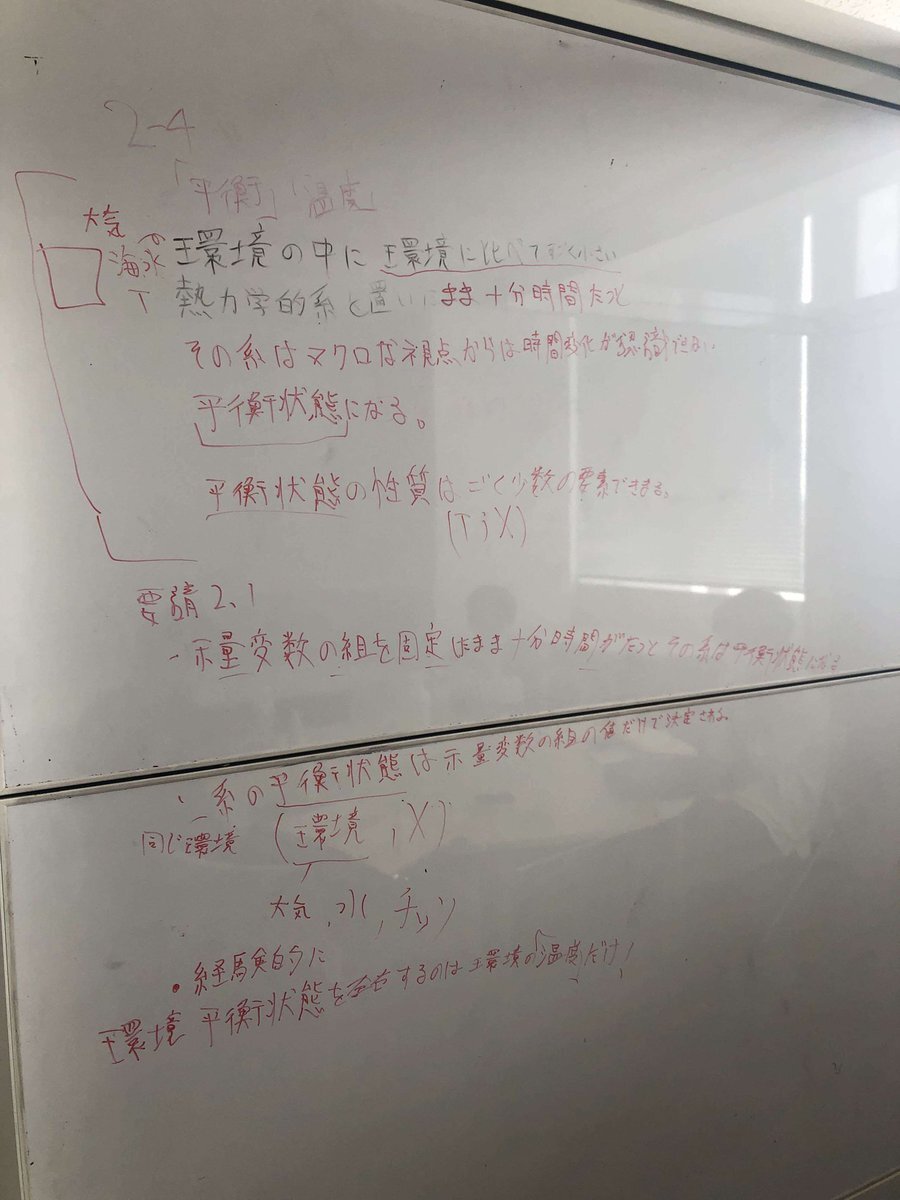 2-4
「平衡」「温度」
大気
海水
T
環境の中に 環境に比べてすごく小さい
熱力学的系を置いたまま十分時間たつと
その系はマクロな視点からは時間変化が認識できない
平衡状態になる。
平衡状態の性質はごく少数の要素できまる。
(T; X)
要請2.1
・示量変数の組を固定したまま十分時間がたつとその系は平衡状態になる
・系の平衡状態は示量変数の組の値だけで決定される
同じ環境 (環境, X)
大気, 水, チッソ
・経験的に
環境 平衡状態を左右するのは環境の「温度だけ!